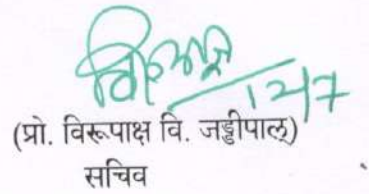 12/7
(प्रो. विरूपाक्ष वि. जड्डीपाल्)
सचिव